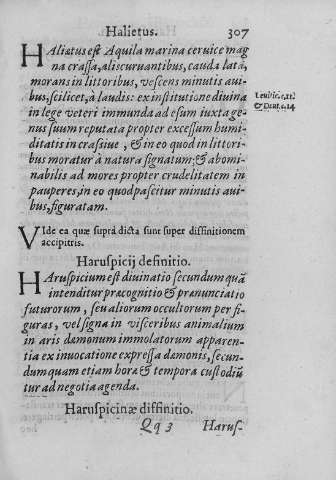 Halietus. 307
HAliatus est Aquila marina ceruice mag
na crassa, alis curuantibus, cauda lata,
morans in littoribus, vescens minutis aui-
bus, scilicet, à laudis: ex institutione diuina
in lege veteri immunda ad esum iuxta ge-
nus suum reputata propter excessum humi-
ditatis in crassitie, & in eo quod in littori-
bus moratur à natura signatum; & abomi-
nabilis ad mores propter crudelitatem in
pauperes, in eo quod pascitur minutis aui-
bus, figuratam.
Leuitic. c. 11.
& Deut. c. 14
VIde ea quæ suprà dicta sunt super diffinitionem
accipitris.
Haruspicij definitio.
HAruspicium est diuinatio secundum quã
intenditur præcognitio & pranunciatio
futurorum, seu aliorum occultiorum per fi-
guras, vel signa in visceribus animalium
in aris dæmonum immolatorum apparen-
tia ex inuocatione expressa dæmonis, secun-
dum quam etiam horæ & tempora custodiũ
tur ad negotia agenda.
Haruspicinæ diffinitio.
Qq 3 Harus-